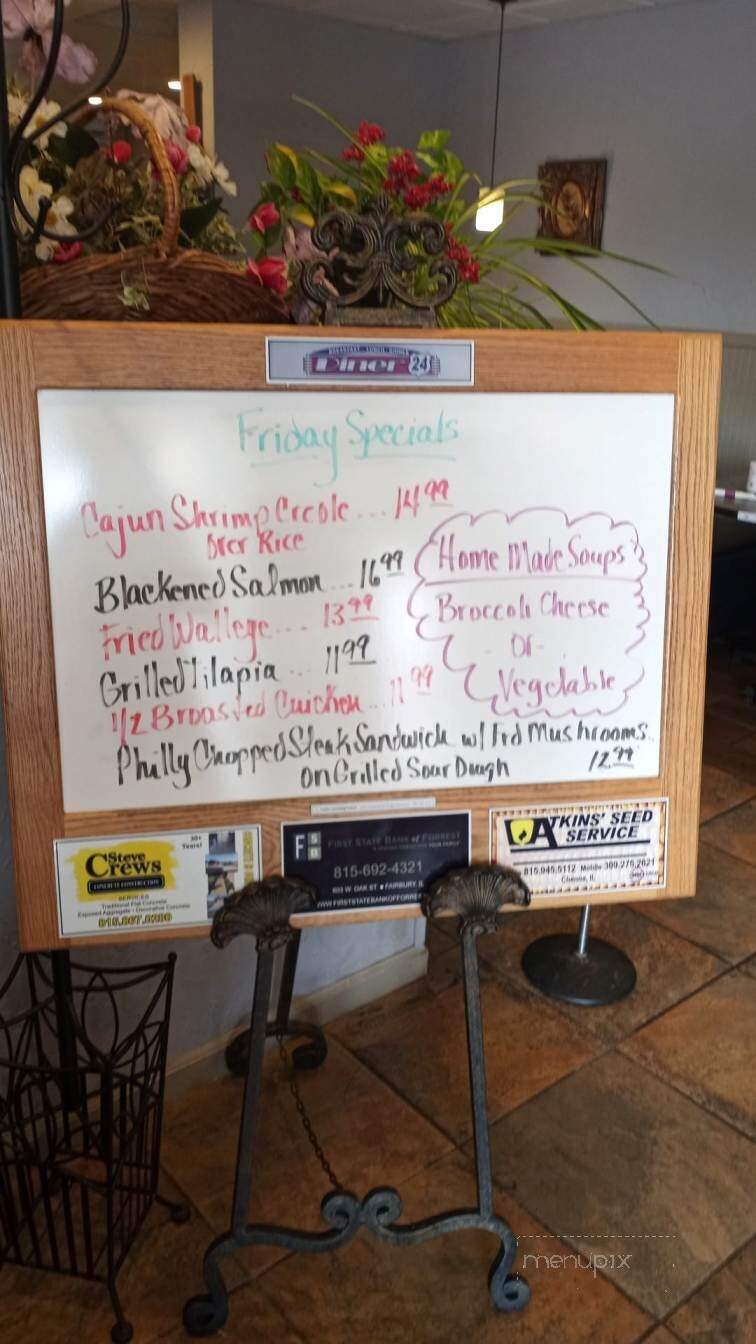 BREAKFAST - LUNCH - DINNER
Diner 24
Friday Specials
Cajun Shrimp Creole ... 14.99
Over Rice
Blackened Salmon ... 16.99
Fried Wallege ... 13.99
Grilled Tilapia ... 11.99
1/2 Broasted Chicken .. 11.99
Philly Chopped Steak Sandwich w/ Frd Mushrooms
on Grilled Sour Dough 12.99
Home Made Soups
Broccoli Cheese
- or -
Vegetable
Steve
Crews
CONCRETE CONSTRUCTION
30+
Years!
SERVICES
Traditional Flat Concrete
Exposed Aggregate • Decorative Concrete
FSB
FIRST STATE BANK of FORREST
815-692-4321
FAIRBURY,
ATKINS' SEED
SERVICE
815.945.5112 Mobile 309.275.2821
Chenoa, IL
menupix